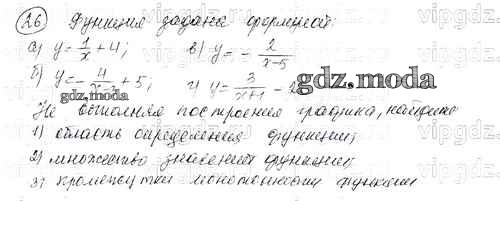 26 Функция задана формулой:
а) y = 1/x + 4; в) y = - 2/(x-5)
б) y = - 4/ + 5; г) y = 3/(x+1) - 2
gdz.moda
gdz.moda
Не выполняя построения графика, найдите
1) область определения функции;
2) множество значений функции;
3) промежутки монотонности функции